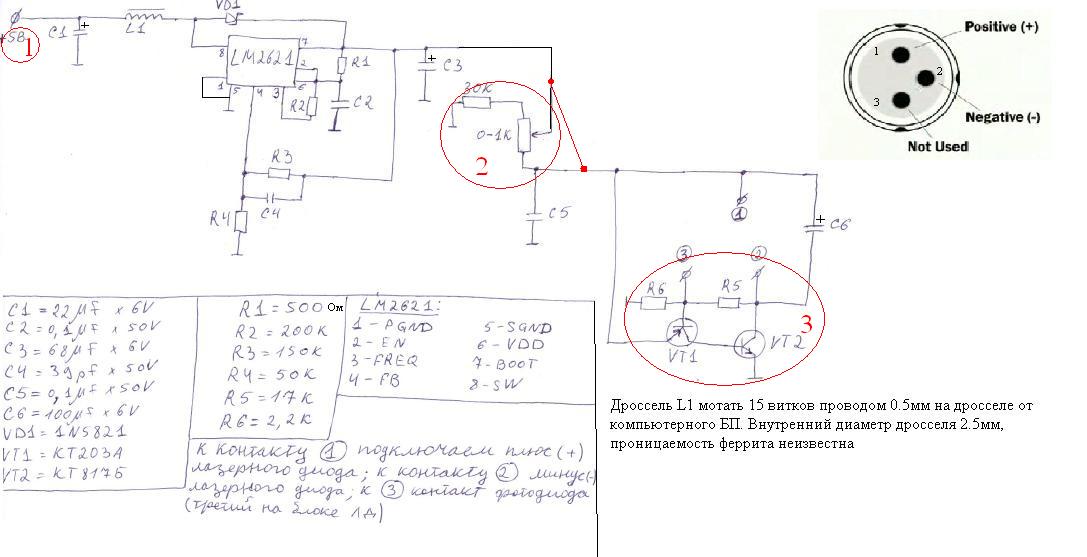 +5В
1
C1
+
L1
VD1
8
LM2621
7
2
6
1
5
4
3
R1
R2
C2
+
C3
30К
0-1К
2
C5
R3
C4
R4
1
+
C6
3
2
R6
R5
3
VT1
VT2
Positive (+)
1
2
3
Negative (-)
Not Used
C1 = 22µf x 6V
C2 = 0,1µf x 50V
C3 = 68µf x 6V
C4 = 39pf x 50V
C5 = 0,1µf x 50V
C6 = 100µf x 6V
VD1 = 1N5821
VT1 = КТ203А
VT2 = КТ817Б
R1 = 500 Ом
R2 = 200К
R3 = 150К
R4 = 50К
R5 = 17К
R6 = 2,2К
LM2621:
1 - PGND
2 - EN
3 - FREQ
4 - FB
5 - SGND
6 - VDD
7 - BOOT
8 - SW
К контакту 1 подключаем плюс (+)
лазерного диода; к контакту 2 минус(-)
лазерного диода; к 3 контакт фотодиода
(третий на блоке ЛД)
Дроссель L1 мотать 15 витков проводом 0.5мм на дросселе от
компьютерного БП. Внутренний диаметр дросселя 2.5мм,
проницаемость феррита неизвестна